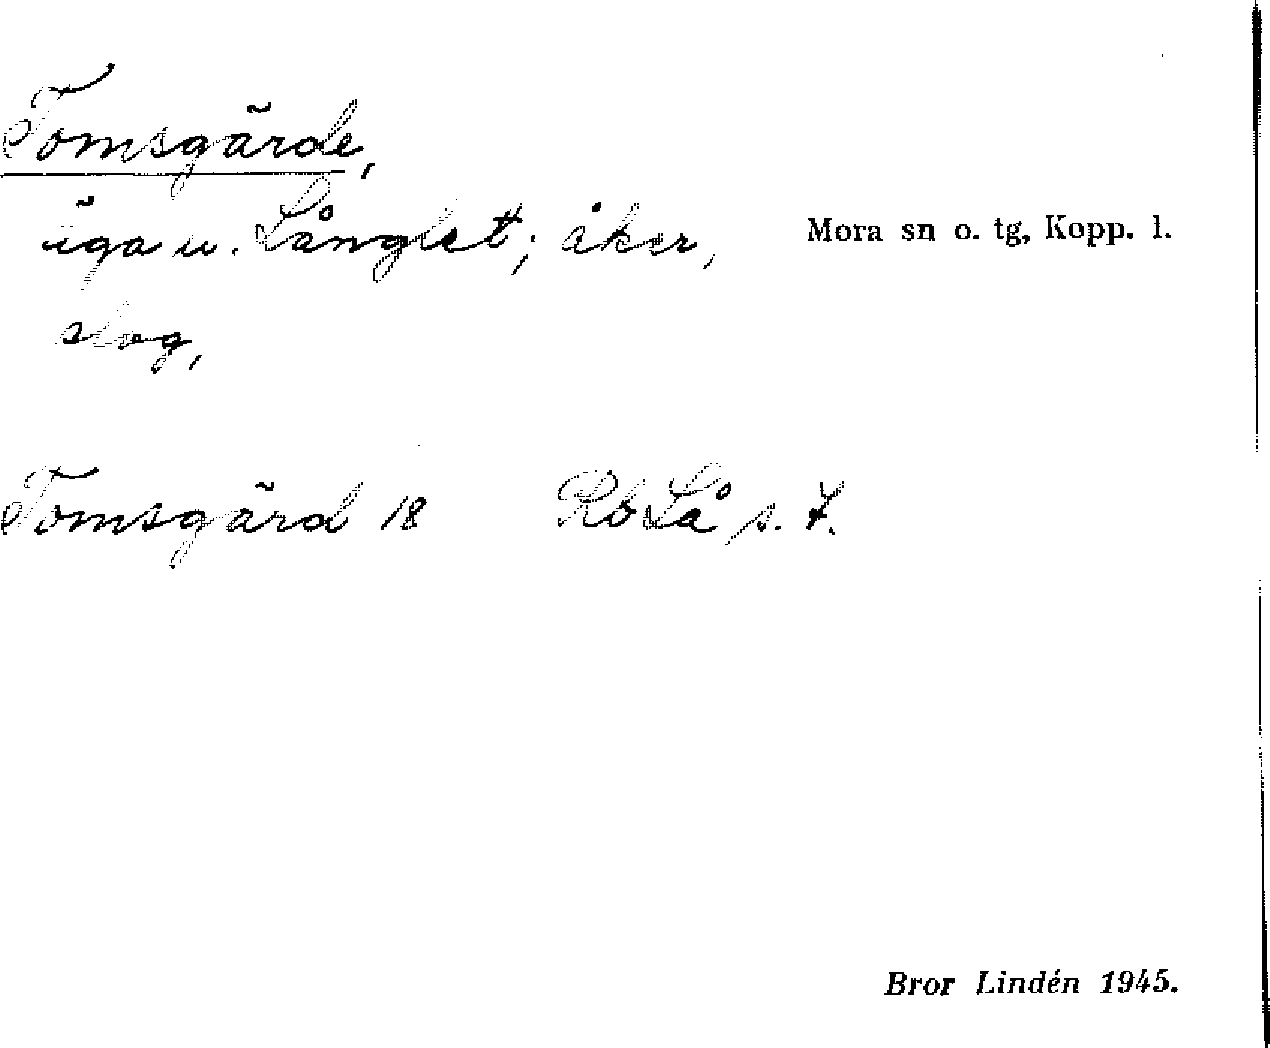 Tomsgärde,
äga u. Långlet; åker,
Mora sn o. tg, Kopp. l.
slog,
Tomsgärd 18 RbLå s. 7.
Bror Lindén 1945.